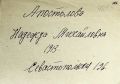 Апостолова
Надежда Михайловна
193
Севастополь 196